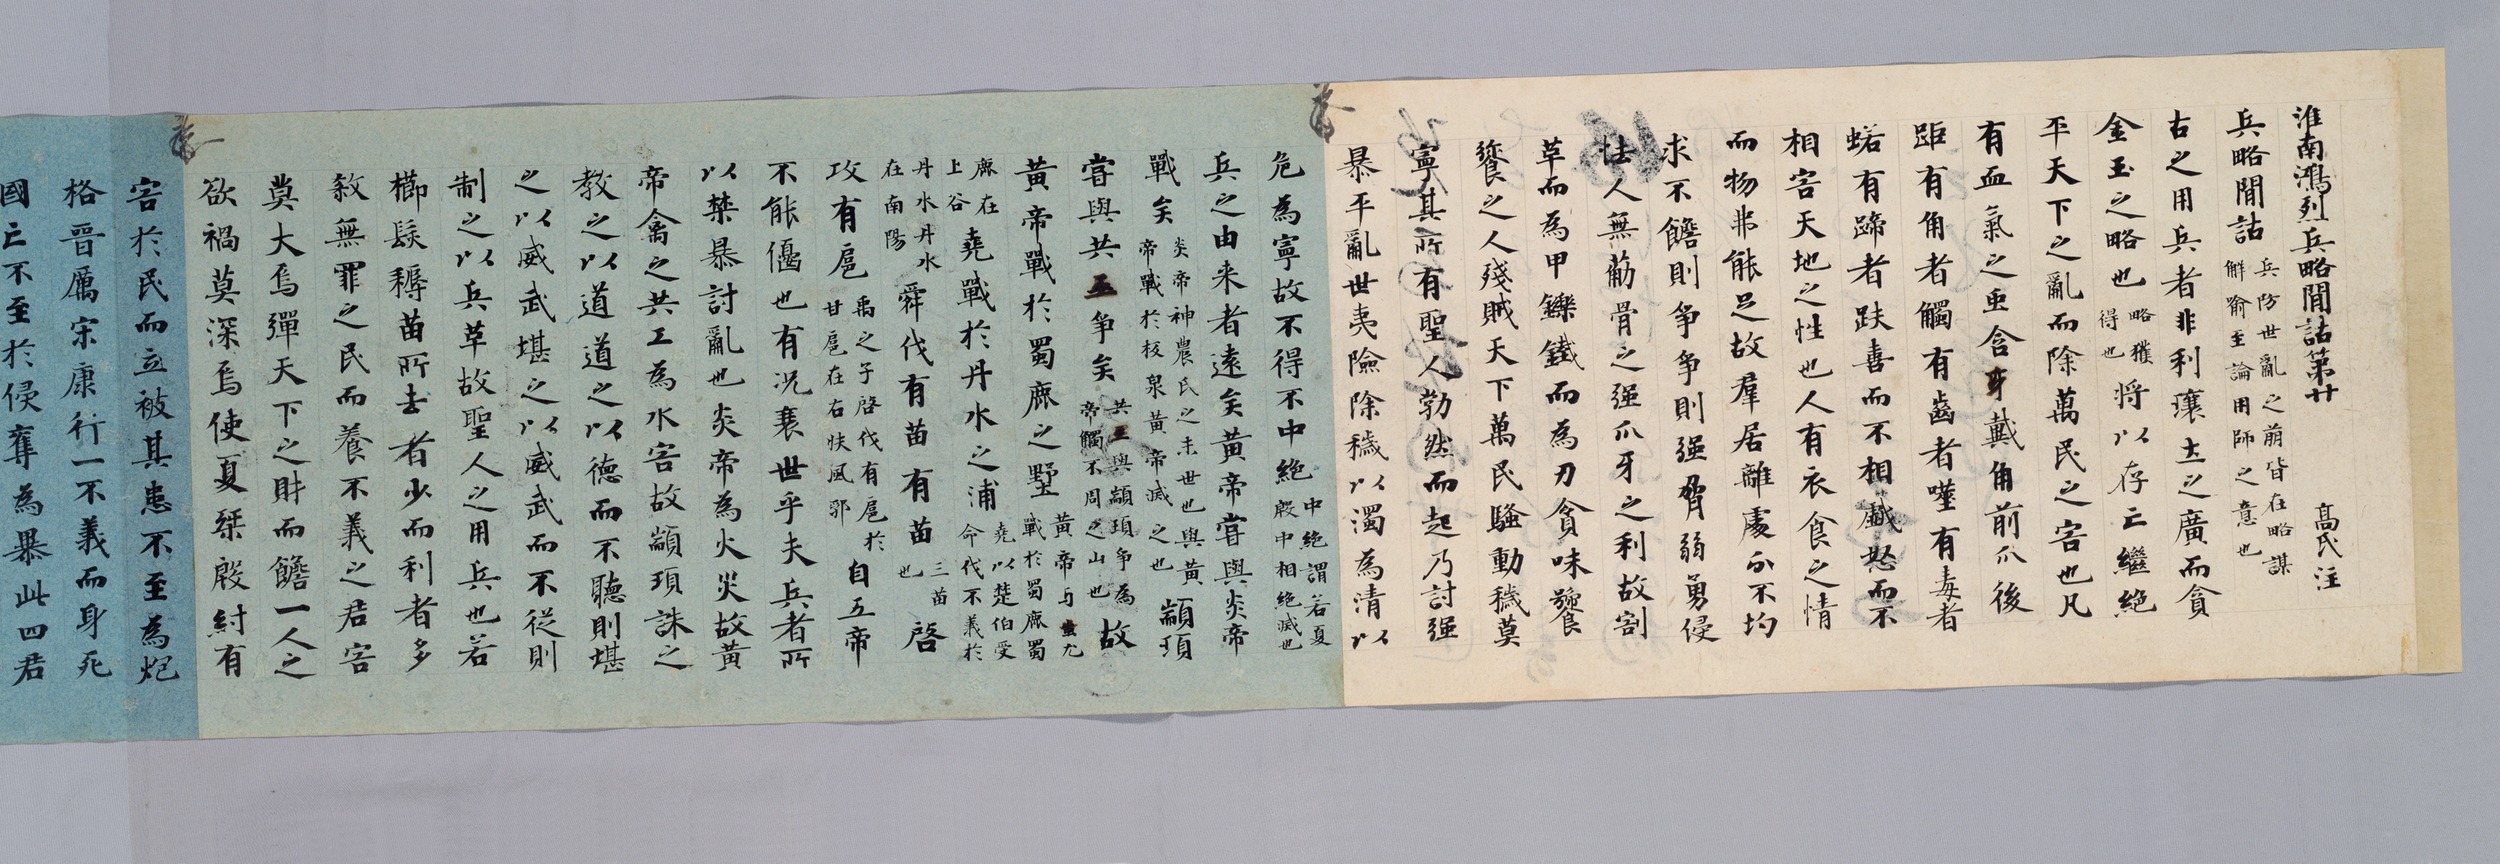 淮南鴻烈兵略間詁第廿 高氏注
兵略間詁 兵防世亂之萌皆在略謀 解喻至論用師之意也
古之用兵者非利壤土之廣而貪
金玉之略也 略獲得也 將以存亡繼絕
平天下之亂而除萬民之害也凡
有血氣之虫含牙戴角前爪後
距有角者觸有齒者噬有毒者
蠚有蹄者趹喜而不相戲怒而不
相害天地之性也人有衣食之情
而物弗能足故羣居離處分不均
求不饍則爭爭則强脅弱勇侵
怯人無筋骨之强爪牙之利故割
革而為甲鑠鐵而為刃貪味饕
餮之人殘賊天下萬民騷動穢莫
寧其所有聖人勃然而起乃討强
暴平亂世夷險除穢以濁為清以
危為寧故不得不中絕 中絕謂若夏殷中相絕滅也
兵之由来者遠矣黃帝嘗與炎帝
戰矣 炎帝神農氏之末世也與黃帝戰於板泉黃帝滅之也 顓頊
嘗與共工爭矣 共工與顓頊爭為帝觸不周之山也 故
黃帝戰於蜀鹿之墅 黃帝与蚩尤戰於蜀鹿蜀
鹿在上谷 堯戰於丹水之浦 堯以楚伯受命伐不義於
丹水丹水在南陽 舜伐有苗有苗 三苗也 啓
攻有扈 禹之子啓伐有扈於甘扈在右扶風鄠 自五帝
不能偃也有況衰世乎夫兵者所
以禁暴討亂也炎帝為火災故黃
帝禽之共工為水害故顓頊誅之
教之以道道之以德而不聽則堪
之以威武堪之以威武而不從則
制之以兵草故聖人之用兵也若
櫛髮耨苗所去者少而利者多
敘無罪之民而養不義之君害
莫大焉彈天下之財而饍一人之
欲禍莫深焉使夏桀殷紂有
害於民而立被其患不至為炮
格晉厲宋康行一不義而身死
國亡不至於侵奪為暴此四君